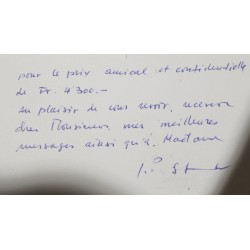 pour le prix amical et confidentielle
de Fr. 4'300.-
Au plaisir de vous revoir, recevez
cher Monsieur mes meilleures
messages ainsi qu'à Madame
J.P.